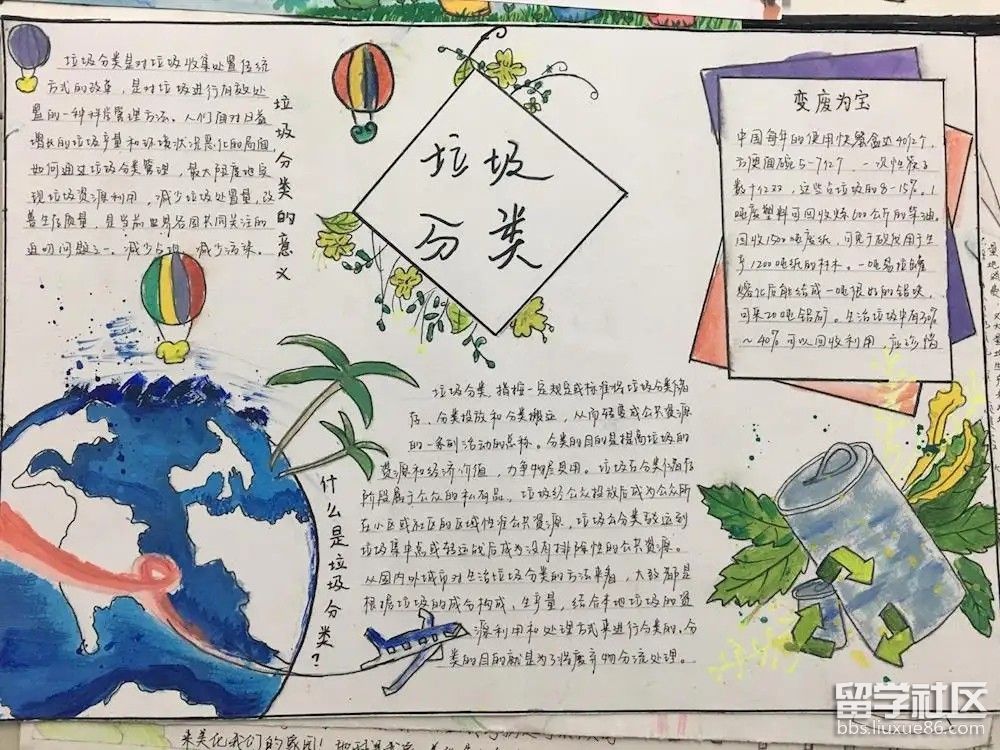 垃圾分类是对垃圾收集处置传统
方式的改革，是对垃圾进行有效处
置的一种科学管理方法。人们面对日益
增长的垃圾产量和环境状况恶化的局面，
如何通过垃圾分类管理，最大限度地实
现垃圾资源利用，减少垃圾处置量，改
善生存质量，是当前世界各国共同关注的
迫切问题之一。减少占地，减少污染。
垃圾分类的意义
垃圾
分类
变废为宝
中国每年的使用快餐盒达40亿个，
方便面碗5-7亿个，一次性筷子
数十亿双，这些占垃圾的8-15%。1
吨废塑料可回收炼600公斤的柴油。
回收1500吨废纸，可免于砍伐用于生
产1200吨纸的林木。一吨易拉罐
熔化后能结成一吨很好的铝块，
可采20吨铝矿。生活垃圾中有30%
~40%可以回收利用，应珍惜
什么是垃圾分类？
垃圾分类，指按一定规定或标准将垃圾分类储
存、分类投放和分类搬运，从而转变成公共资源
的一系列活动的总称。分类的目的是提高垃圾的
资源和经济价值，力争物尽其用。垃圾在分类储存
阶段属于公众的私有品，垃圾经公众投放后成为公众所
在小区或社区的区域性准公共资源，垃圾分类驳运到
垃圾集中点或转运站后成为没有排除性的公共资源。
从国内外城市对生活垃圾分类的方法来看，大致都是
根据垃圾的成分构成、生产量，结合本地垃圾的资
源利用和处理方式来进行分类的。分
类的目的就是为了将废弃物分流处理。
来美化我们的家园！
留学社区
bbs.liuxue86.com